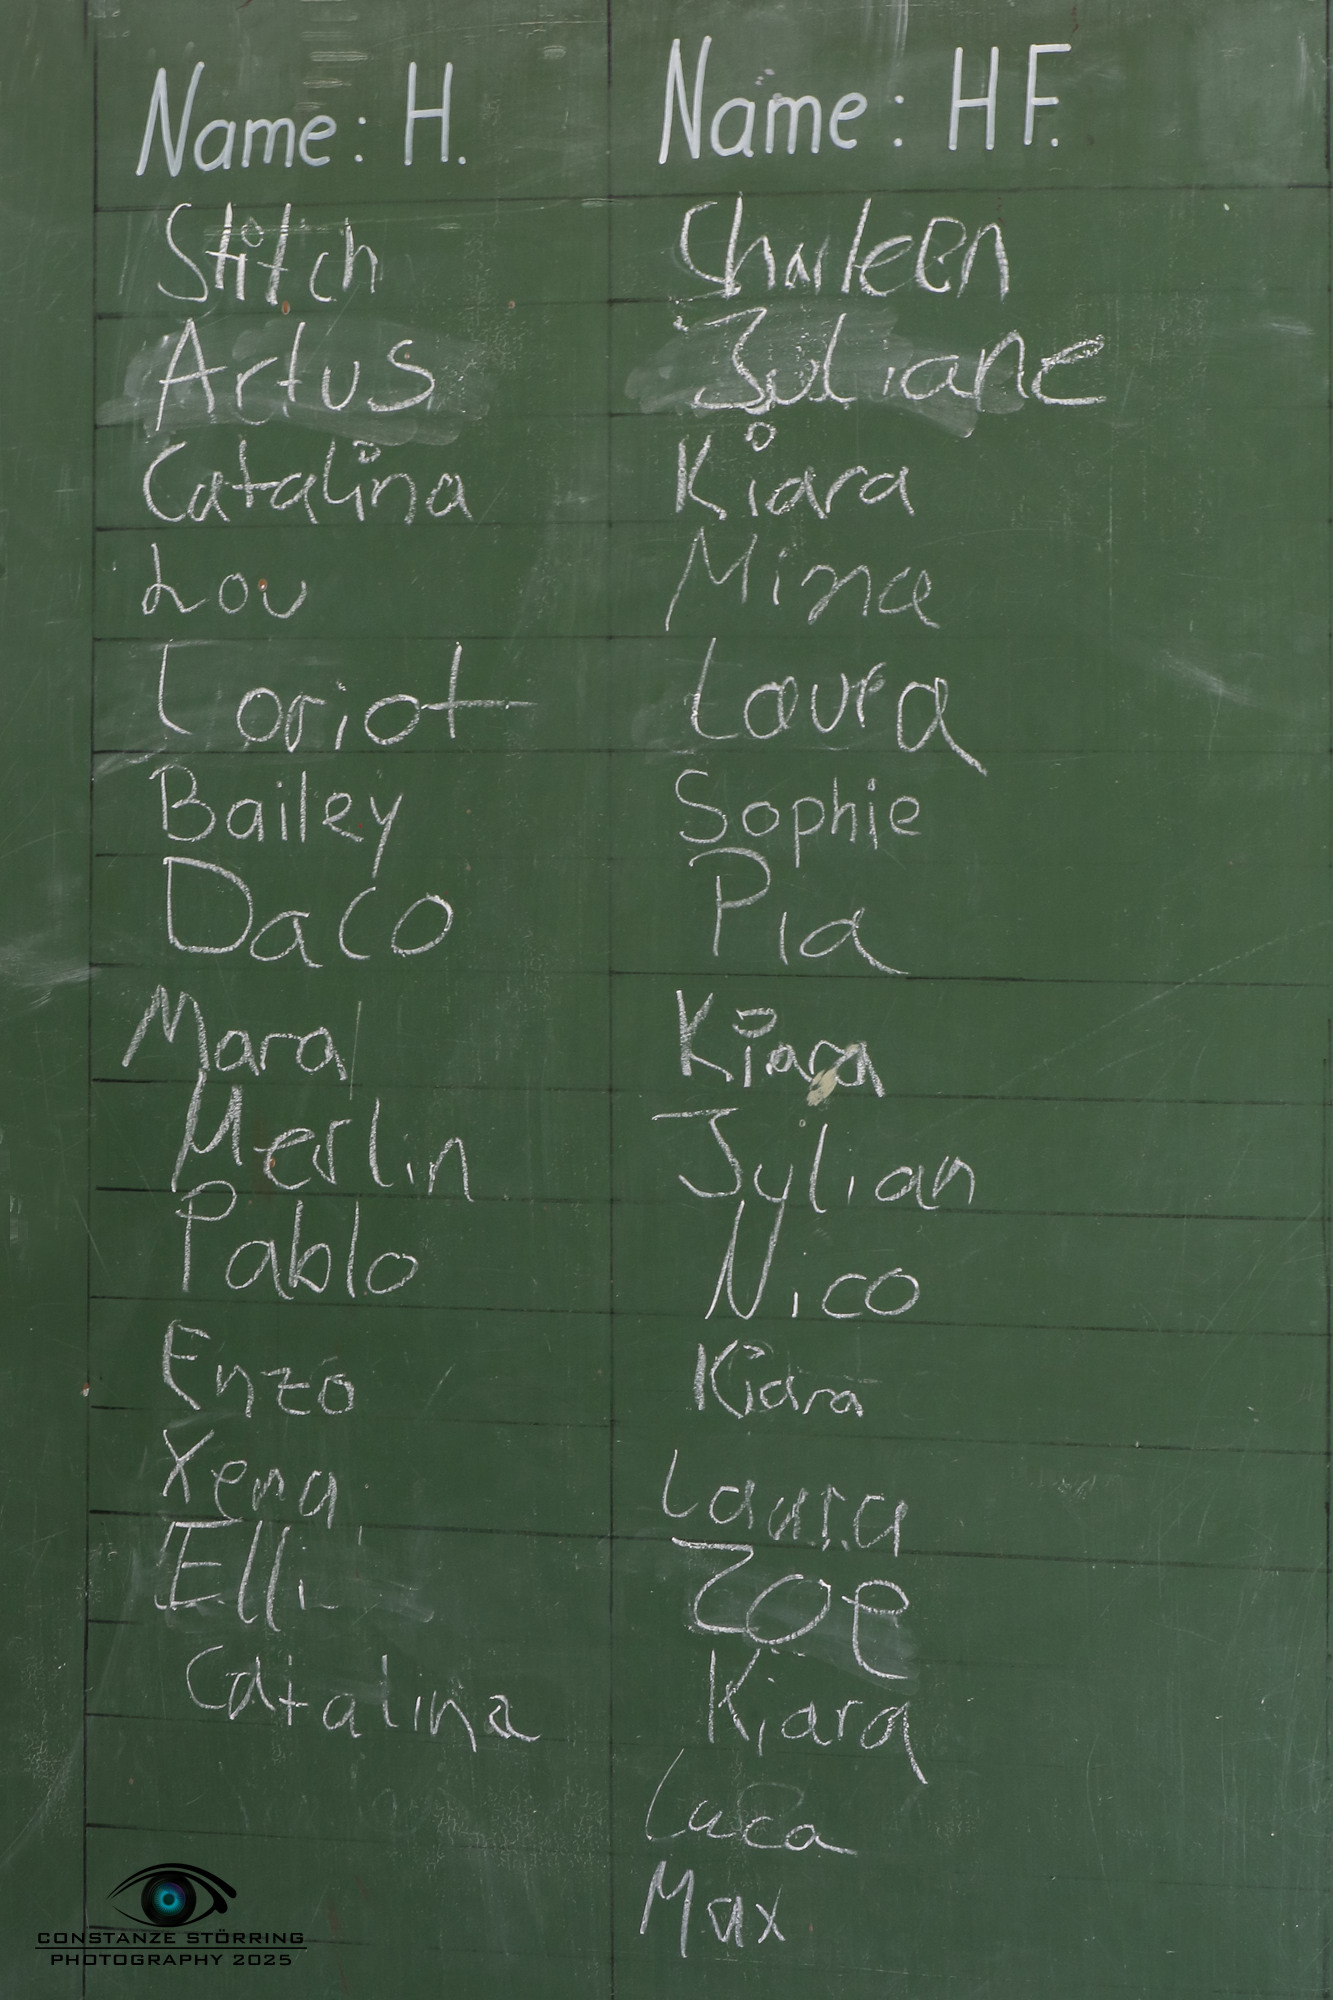 Name: H. Name: HF.
Stitch Charleen
Artus Juliane
Catalina Kiara
Lou Mina
Loriot Laura
Bailey Sophie
Daco Pia
Mara Kiara
Merlin Julian
Pablo Nico
Enzo Kiara
Xena Laura
Elli Zoe
Catalina Kiara
Luca
Max
CONSTANZE STÖRRING
PHOTOGRAPHY 2025